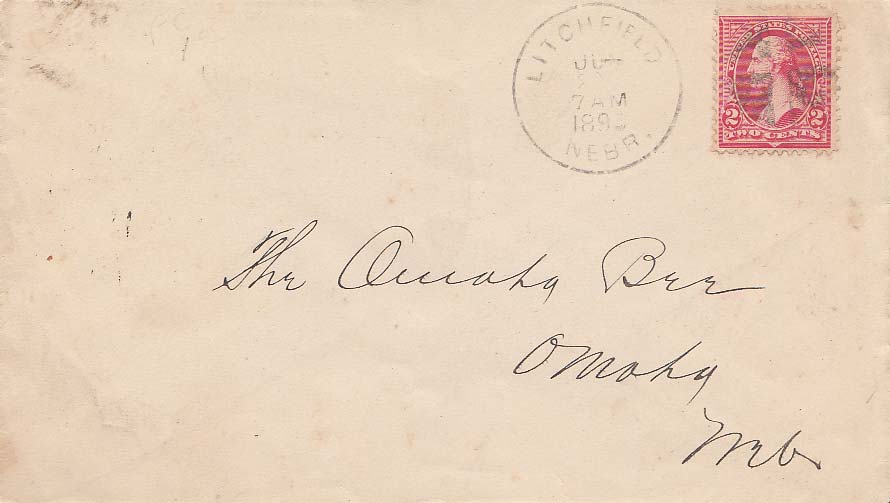 LITCHFIELD
7 AM
NEBR.
UNITED STATES POSTAGE
2 2
TWO CENTS
The Omaha Bee
Omaha
Neb